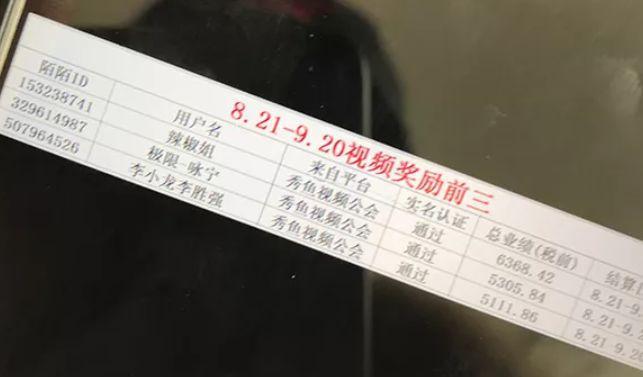 8.21-9.20视频奖励前三
陌陌ID 用户名 来自平台 实名认证 总业绩(税前) 结算
153238741 辣椒姐 秀鱼视频公会 通过 6368.42 8.21-9.
329614987 极限-咏宁 秀鱼视频公会 通过 5305.84 8.21-9.
507964526 李小龙李胜强 秀鱼视频公会 通过 5111.86 8.21-9.2